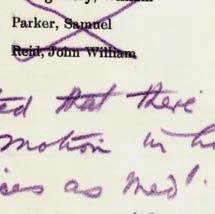 Parker, Samuel
Reid, John William
ted that there
motion in
ices as med'.